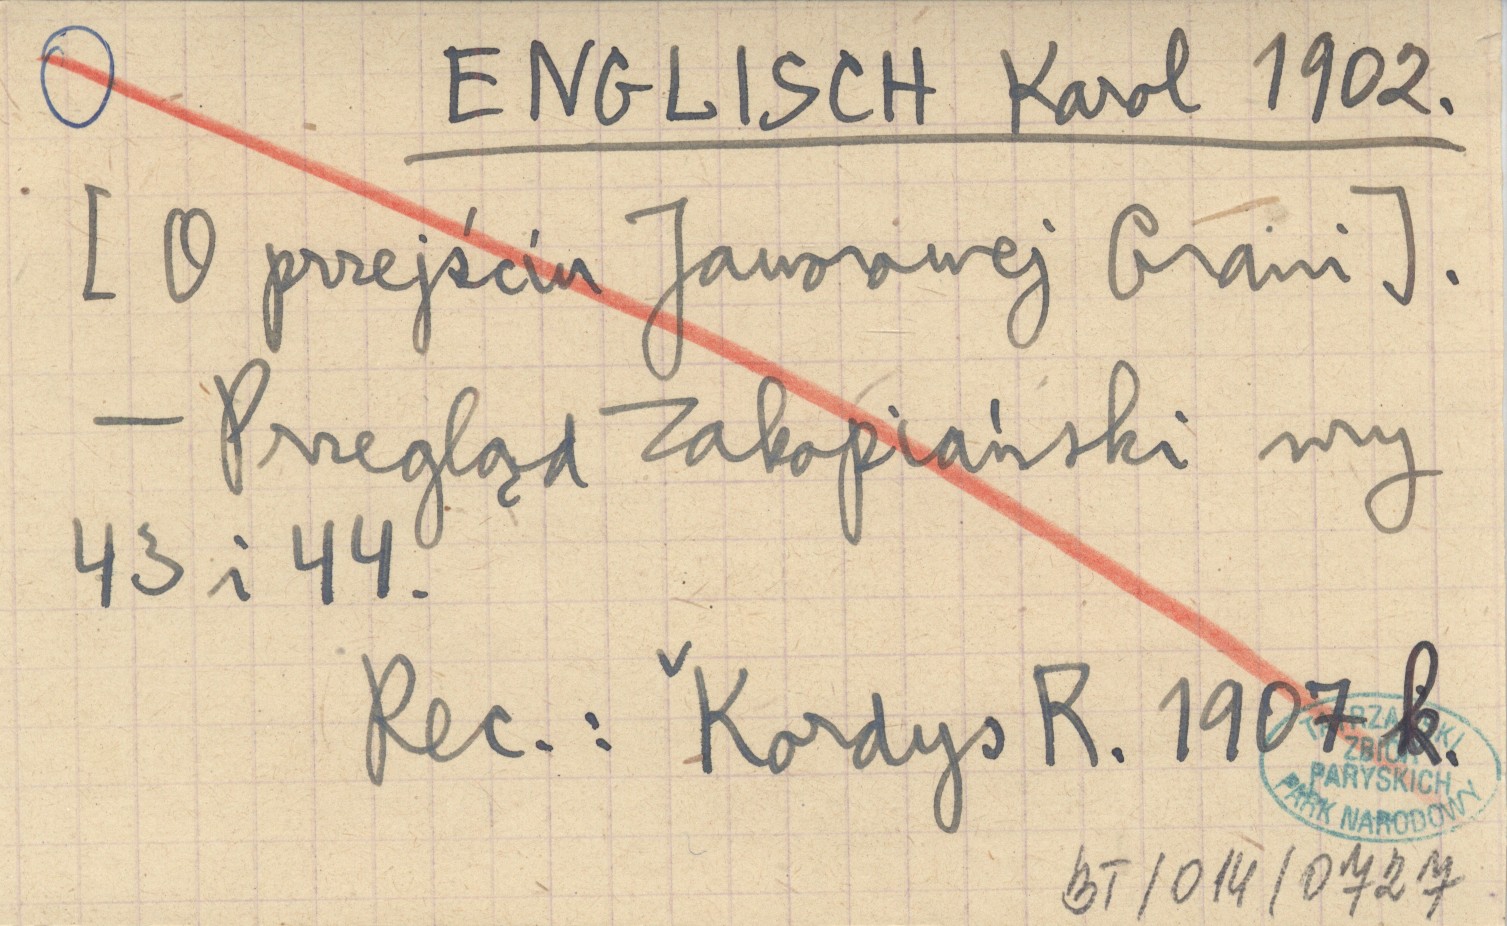 ENGLISCH Karol 1902.
[O przejściu Jaworowej Grani].
— Przegląd Zakopiański nry
43 i 44.
Rec.: ˇKordys R. 1907 k.
TATRZAŃSKI
ZBIOR
PARYSKICH
PARK NARODOWY
BT/014/0727